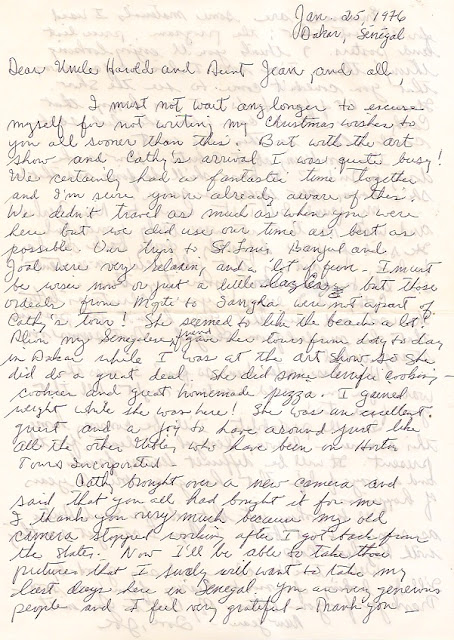 Jan. 25, 1976
Dakar, Sénégal
Dear Uncle Harold and Aunt Jean, and all,
I must not wait any longer to excuse
myself for not writing my Christmas wishes to
you all sooner than this. But with the art
show and Cathy's arrival I was quite busy!
We certainly had a fantastic time together
and I'm sure you're already aware of this.
We didn't travel as much as when you were
here but we did use our time as best as
possible. Our trips to St. Louis, Banjul and
Joal were very relaxing and a lot of fun. I must
be wiser now or just a little lazier but those
ordeals from Mopti to Sangha were not a part of
Cathy's tour! She seemed to like the beach a lot!
my Senegalese friend gave her tours from day to day
in Dakar while I was at the art show so she
did do a great deal. She did some terrific cooking -
cookies and great homemade pizza. I gained
weight while she was here! She was an excellent
guest and a joy to have around just like
all the other who have been on
Tours Incorporated -
Cathy brought over a new camera and
said that you all had bought it for me
I thank you very much because my old
camera stopped working after I got back from
the States. Now I'll be able to take those
pictures that I surely will want to take my
last days here in Sénégal. You are very generous
people and I feel very grateful - Thank you -